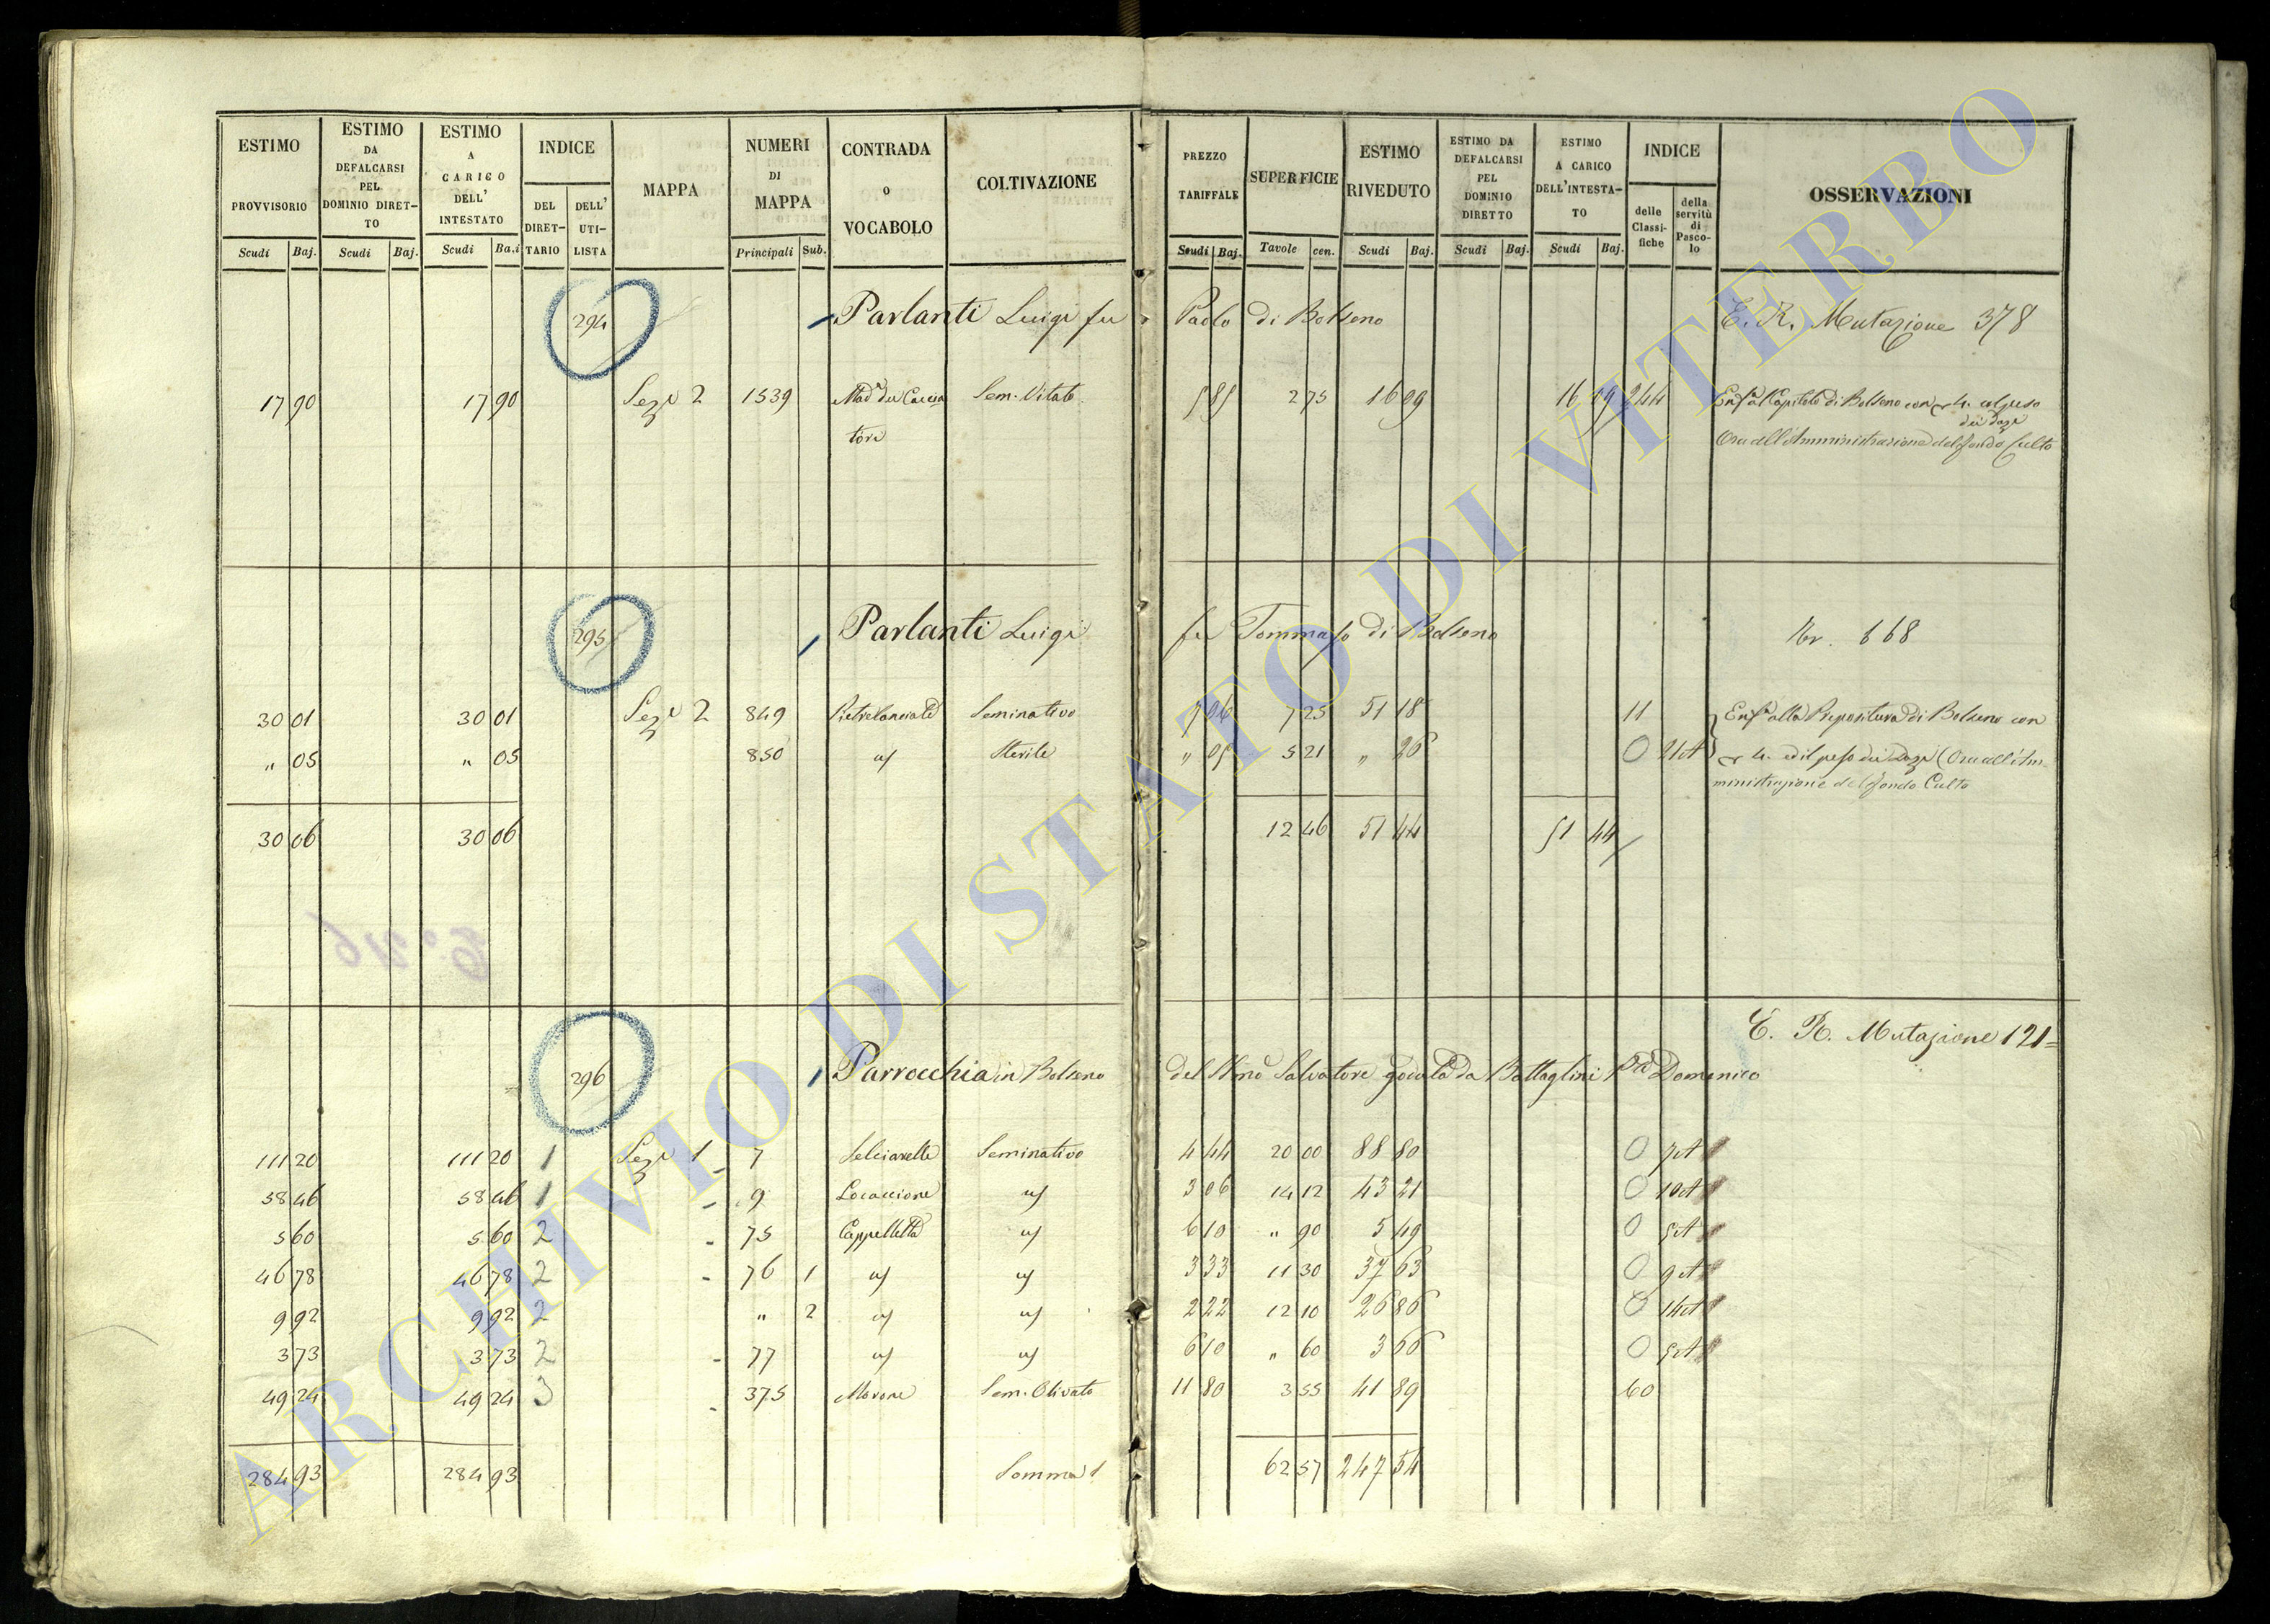 ESTIMO PROVVISORIO Scudi Baj. ESTIMO DA DEFALCARSI PEL DOMINIO DIRET-TO Scudi Baj. ESTIMO A CARICO DELL' INTESTATO Scudi Ba.i INDICE DEL DIRET-TARIO DELL' UTI-LISTA MAPPA NUMERI DI MAPPA Principali Sub. CONTRADA O VOCABOLO COLTIVAZIONE PREZZO TARIFFALE Scudi Baj. SUPERFICIE Tavole cen. ESTIMO RIVEDUTO Scudi Baj. ESTIMO DA DEFALCARSI PEL DOMINIO DIRETTO Scudi Baj. ESTIMO A CARICO DELL'INTESTA-TO Scudi Baj. INDICE delle Classi-fiche della servitù di Pasco-lo OSSERVAZIONI
294 Parlanti Luigi fu Paolo di Bolseno E. R. Mutazione 378
17 90 17 90 Sez.e 2 1539 Mad.a del Caccia Sem. Vitato 5 85 2 75 16 09 16 09 244 Enf.a al Capitolo di Bolseno con 4. col peso
tore dei Dazi
Ora all'Amministrazione del fondo Culto
295 Parlanti Luigi fu Tommaso di Bolseno Nr. 668
30 01 30 01 Sez.e 2 849 Pietrelanciate Seminativo 7 06 7 25 51 18 11 Enf.a alla Prepositura di Bolseno con
" 05 " 05 850 Sterile " 05 5 21 " 26 0 21A 4. ed il peso dei Dazi (Ora all'Am-
ministrazione del fondo Culto
30 06 30 06 12 46 51 44 51 44
E. R. Mutazione 121
296 Parrocchia in Bolseno del SS.mo Salvatore goduta da Battaglini Domenico
111 20 111 20 1 Sez.e 1 7 Selciarella Seminativo 4 44 20 00 88 80 0 7A
58 46 58 46 1 9 Locaccione 3 06 14 12 43 21 0 10A
5 60 5 60 2 75 Cappelletta 6 10 " 90 5 49 0 5A
46 78 46 78 2 76 1 3 33 11 30 37 63 0 9A
9 92 9 92 2 " 2 2 22 12 10 26 86 0 14A
3 73 3 73 2 77 6 10 " 60 3 66 0 5A
49 24 49 24 3 375 Morone Sem. Olivato 11 80 3 55 41 89 60
284 93 284 93 Somma 1 62 57 247 54
ARCHIVIO DI STATO DI VITERBO